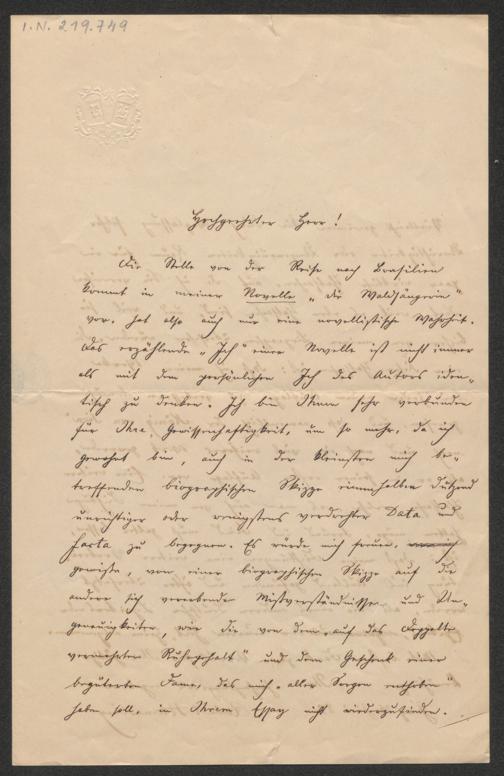 I.N. 219.749
Hochgeehrter Herr!
Die Stelle von der Reise nach Brasilien
kommt in meiner Novelle „die Waldsängerin"
vor, hat also auch nur eine novellistische Wahrheit.
Das erzählende „Ich" einer Novelle ist nicht immer
als mit dem persönlichen Ich des Autors iden-
tisch zu denken. Ich bin Ihnen sehr verbunden
für Ihre Gewissenhaftigkeit, um so mehr, da ich
gewohnt bin, auch in der kleinsten mich be-
treffenden biographischen Skizze einem halben Dutzend
unrichtiger oder wenigstens verdrehter Data und
facta zu begegnen. Es würde mich freuen,
gewisse, von einer biographischen Skizze auf die
andere sich vererbende Mißverständnisse und Un-
genauigkeiten, wie die von dem „auf das Doppelte
vermehrten Ruhegehalt" und dem Geschenk einer
begüterten Dame, das mich „aller Sorgen enthoben"
haben soll, in Ihrem Essay nicht wiederzufinden.